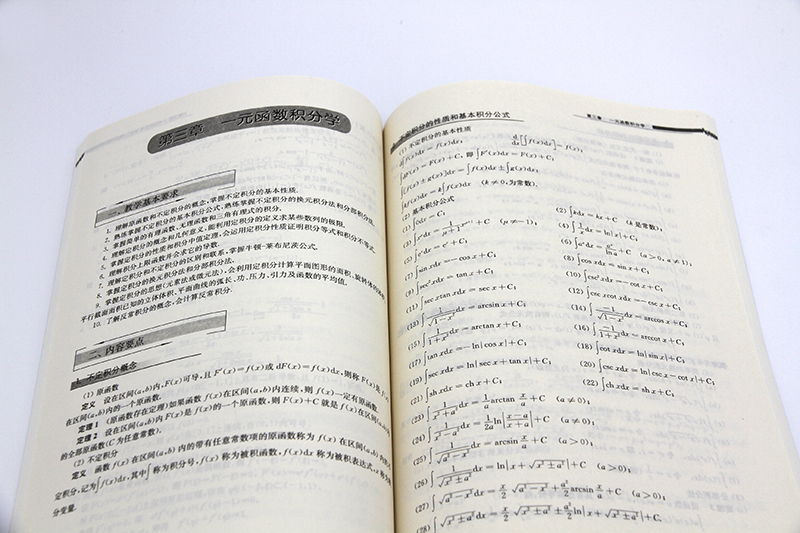 第三章 一元函数积分学
一、教学基本要求
1. 理解原函数和不定积分的概念,掌握不定积分的基本性质.
2. 熟练掌握不定积分的基本积分公式,熟练掌握不定积分的换元积分法和分部积分法.
3. 掌握简单的有理函数、无理函数和三角有理式的积分.
4. 理解定积分的概念和几何意义,能利用定积分的定义求某些数列的极限.
5. 掌握定积分的性质和积分中值定理,会运用定积分性质证明积分等式和积分不等式.
6. 理解积分上限函数并会求它的导数.
7. 理解定积分和不定积分的区别和联系,掌握牛顿-莱布尼茨公式.
8. 掌握定积分的换元积分法和分部积分法.
9. 掌握定积分的思想(元素法或微元法),会利用定积分计算平面图形的面积、旋转体的体积
平行截面面积已知的立体体积、平面曲线的弧长、功、压力、引力及函数的平均值.
10. 了解反常积分的概念,会计算反常积分.
二、内容要点
1. 不定积分概念
(1) 原函数
定义 设在区间(a,b)内,F(x)可导,且F′(x)=f(x)或dF(x)=f(x)dx,则称F(x)是f(x)
在区间(a,b)内的一个原函数.
定理1 (原函数存在定理)如果函数f(x)在区间(a,b)内连续,则f(x)一定有原函数.
定理2 设在区间(a,b)内F(x)是f(x)的一个原函数,则F(x)+C就是f(x)在区间(a,b)
的全部原函数(C为任意常数).
(2) 不定积分
定义 函数f(x)在区间(a,b)内的带有任意常数项的原函数称为f(x)在区间(a,b)内的不
定积分,记为∫f(x)dx,其中∫称为积分号,f(x)称为被积函数,f(x)dx称为被积表达式,x称为积
分变量.
第三章 一元函数积分学
不定积分的性质和基本积分公式
(1) 不定积分的基本性质
d∫f(x)dx=f(x)dx; d/dx[∫f(x)dx]=f(x);
∫dF(x)=F(x)+C,即∫F′(x)dx=F(x)+C;
∫[f(x)±g(x)]dx=∫f(x)dx±∫g(x)dx;
∫kf(x)dx=k∫f(x)dx (k≠0,为常数).
(2) 基本积分公式
(1) ∫0dx=C; (2) ∫kdx=kx+C (k是常数);
(3) ∫xⁿdx=1/(n+1) xⁿ⁺¹+C (n≠-1); (4) ∫1/x dx=ln|x|+C;
(5) ∫eˣdx=eˣ+C; (6) ∫aˣdx=aˣ/ln a+C (a>0,a≠1);
(7) ∫sin xdx=-cos x+C; (8) ∫cos xdx=sin x+C;
(9) ∫sec²xdx=tan x+C; (10) ∫csc²xdx=-cot x+C;
(11) ∫sec xtan xdx=sec x+C; (12) ∫csc xcot xdx=-csc x+C;
(13) ∫1/√(1-x²) dx=arcsin x+C; (14) ∫-1/√(1-x²) dx=arccos x+C;
(15) ∫1/(1+x²) dx=arctan x+C; (16) ∫-1/(1+x²) dx=arccot x+C;
(17) ∫tan xdx=-ln|cos x|+C; (18) ∫cot xdx=ln|sin x|+C;
(19) ∫sec xdx=ln|sec x+tan x|+C; (20) ∫csc xdx=ln|csc x-cot x|+C;
(21) ∫sh xdx=ch x+C; (22) ∫ch xdx=sh x+C;
(23) ∫1/(x²+a²) dx=1/a arctan x/a+C (a≠0);
(24) ∫1/(x²-a²) dx=1/2a ln|(x-a)/(x+a)|+C (a≠0);
(25) ∫1/√(a²-x²) dx=arcsin x/a+C (a>0);
(26) ∫1/√(x²±a²) dx=ln|x+√(x²±a²)|+C (a>0);
(27) ∫√(a²-x²)dx=x/2 √(a²-x²)+a²/2 arcsin x/a+C (a>0);
(28) ∫√(x²±a²)dx=x/2 √(x²±a²)±a²/2 ln|x+√(x²±a²)|+C.